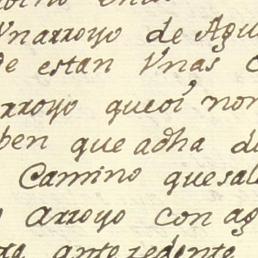 Vnarroyo de Agu
e estan Vnas
rroyo queoi non
ben que adha de
Camino quesal
arroyo con ag
antezedente